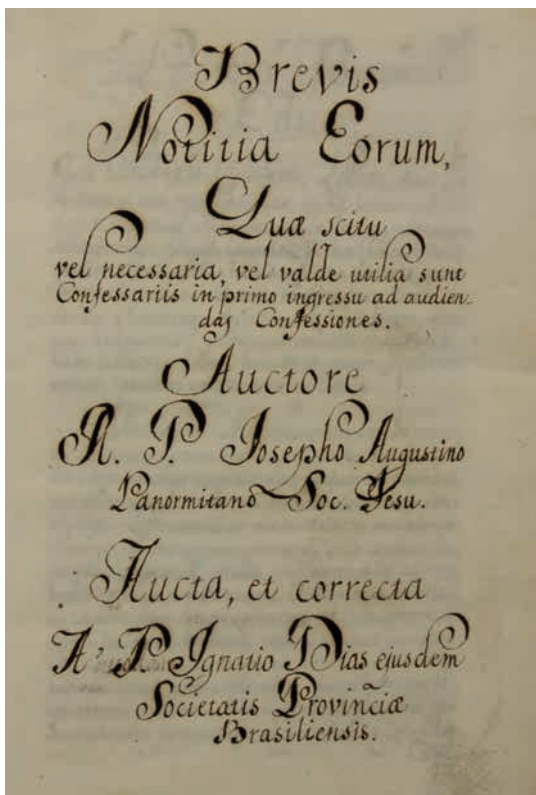 Brevis
Notitia Eorum,
Quæ scitu
vel necessaria, vel valde utilia sunt
Confessariis in primo ingressu ad audien-
das Confessiones.
Auctore
R. P. Josepho Augustino
Panormitano Soc. Jesu.
Aucta, et correcta
A' P. Ignatio Dias ejusdem
Societatis Provinciæ
Brasiliensis.